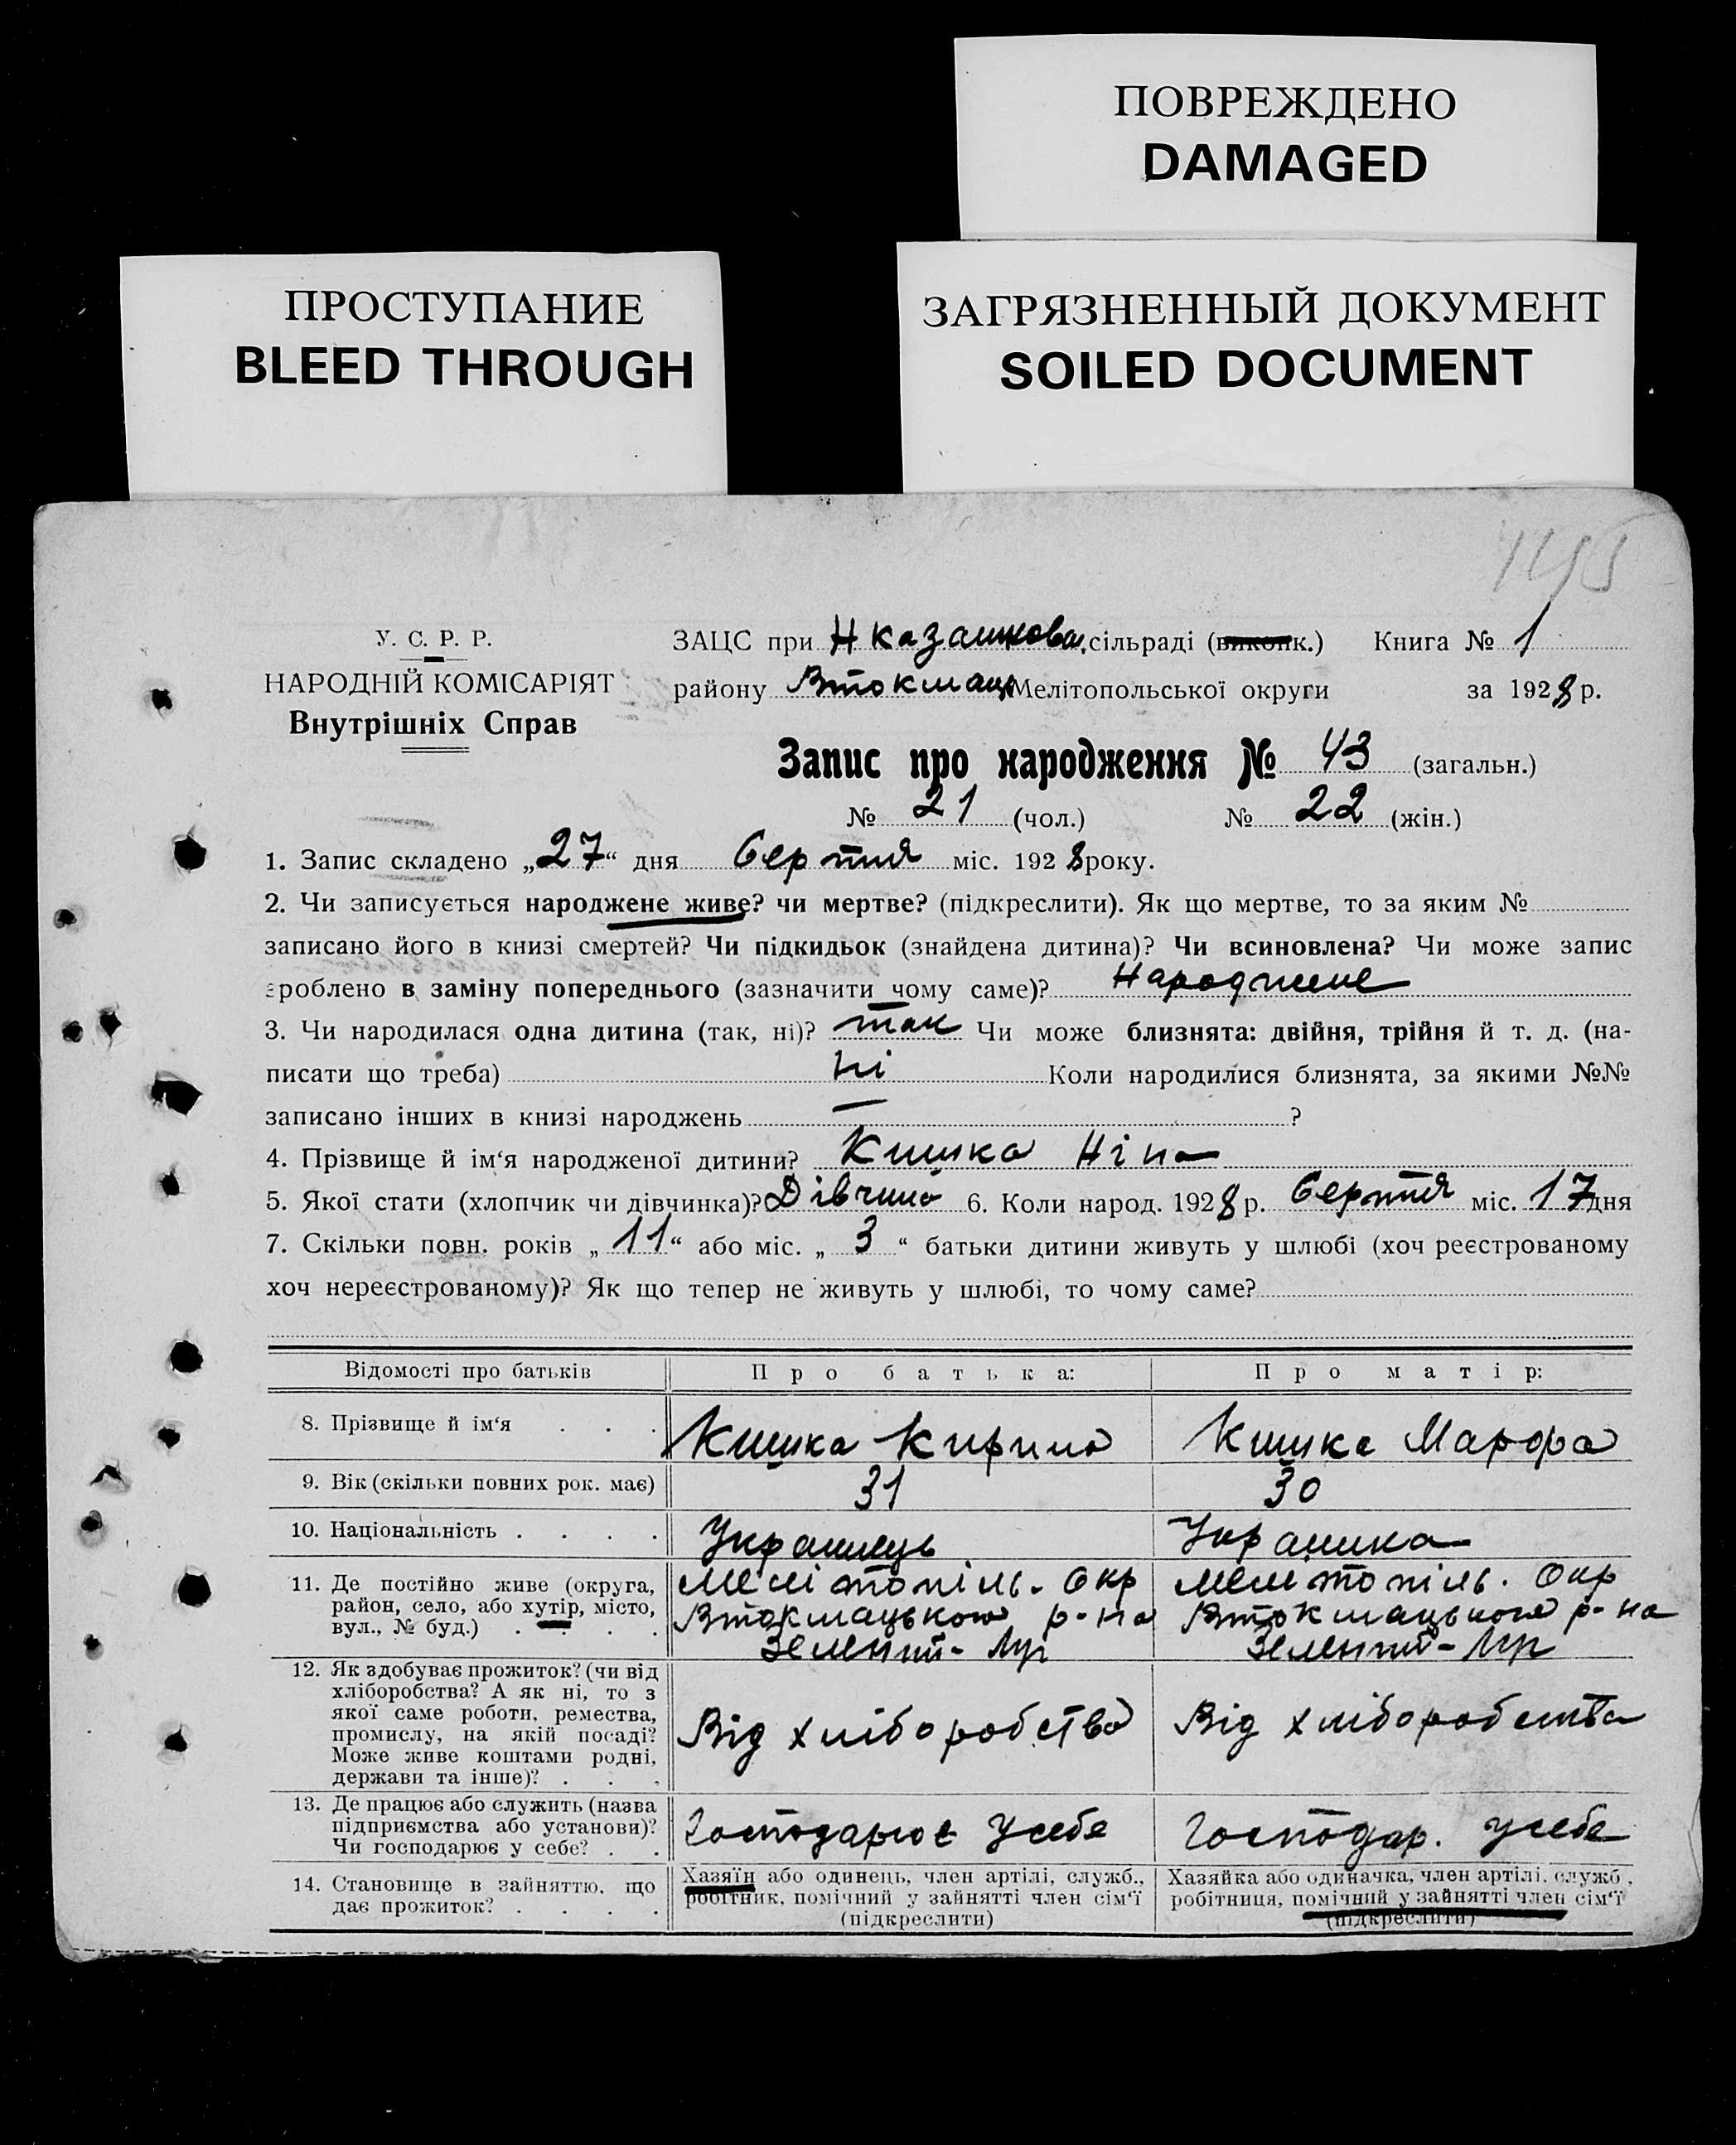 ПОВРЕЖДЕНО
DAMAGED
ПРОСТУПАНИЕ
BLEED THROUGH
ЗАГРЯЗНЕННЫЙ ДОКУМЕНТ
SOILED DOCUMENT
У. С. Р. Р.
НАРОДНІЙ КОМІСАРІЯТ
Внутрішніх Справ
ЗАЦС при Н казанкова, сільраді (виконк.) Книга № 1
району Втокмац Мелітопольської округи за 1928 р.
Запис про народження № 43 (загальн.)
№ 21 (чол.) № 22 (жін.)
1. Запис складено „27“ дня Серпня міс. 1928 року.
2. Чи записується народжене живе? чи мертве? (підкреслити). Як що мертве, то за яким №
записано його в книзі смертей? Чи підкидьок (знайдена дитина)? Чи всиновлена? Чи може запис
зроблено в заміну попереднього (зазначити чому саме)? Народжене
3. Чи народилася одна дитина (так, ні)? так Чи може близнята: двійня, трійня й т. д. (на-
писати що треба) ні Коли народилися близнята, за якими №№
записано інших в книзі народжень — ?
4. Прізвище й ім‘я народженої дитини? Кишка Ніна
5. Якої стати (хлопчик чи дівчинка)? Дівчина 6. Коли народ. 1928 р. Серпня міс. 17 дня
7. Скільки повн. років „11“ або міс. „3“ батьки дитини живуть у шлюбі (хоч реєстрованому
хоч нереєстрованому)? Як що тепер не живуть у шлюбі, то чому саме?
Відомості про батьків Про батька: Про матір:
8. Прізвище й ім‘я . . . Кишка Кирило Кишка Марфа
9. Вік (скільки повних рок. має) 31 30
10. Національність . . . . Українець Українка
11. Де постійно живе (округа, район, село, або хутір, місто, вул., № буд.) . . . .
Мелітопіль. Окр
Втокмацького р-на
Зелений-Луг
Мелітопіль. Окр
Втокмацького р-на
Зелений-Луг
12. Як здобуває прожиток? (чи від
хліборобства? А як ні, то з
якої саме роботи, ремества,
промислу, на якій посаді?
Може живе коштами родні,
держави та інше)? . . .
Від хліборобства Від хліборобства
13. Де працює або служить (назва
підприємства або установи)?
Чи господарює у себе? . .
Господарює усебе Господар. усебе
14. Становище в зайняттю, що
дає прожиток? . . . .
Хазяїн або одинець, член артілі, служб.,
робітник, помічний у зайнятті член сім‘ї
(підкреслити)
Хазяйка або одиначка, член артілі, служб.,
робітниця, помічний у зайнятті член сім‘ї
(підкреслити)